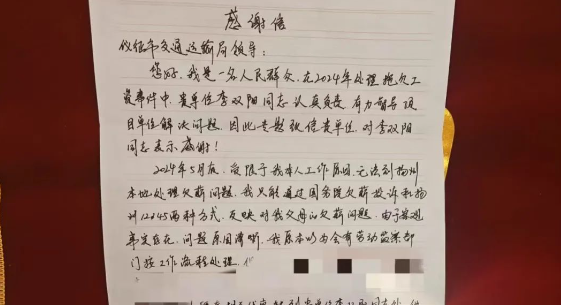 感谢信
仪征市交通运输局领导：
您好，我是一名人民群众，在2024年处理拖欠工
资事件中，贵单位李双阳同志认真负责，有力督导项
目单位解决问题，因此专题致信贵单位，对李双阳
同志表示感谢！
2024年5月底，受限于我本人工作原因，无法到扬州
本地处理欠薪问题，我只能通过国务院欠薪投诉和扬
州12345两种方式，反映对我父母的欠薪问题，由于客观
事实存在，问题原因清晰，我原本以为会有劳动监察部
门按工作流程处理，